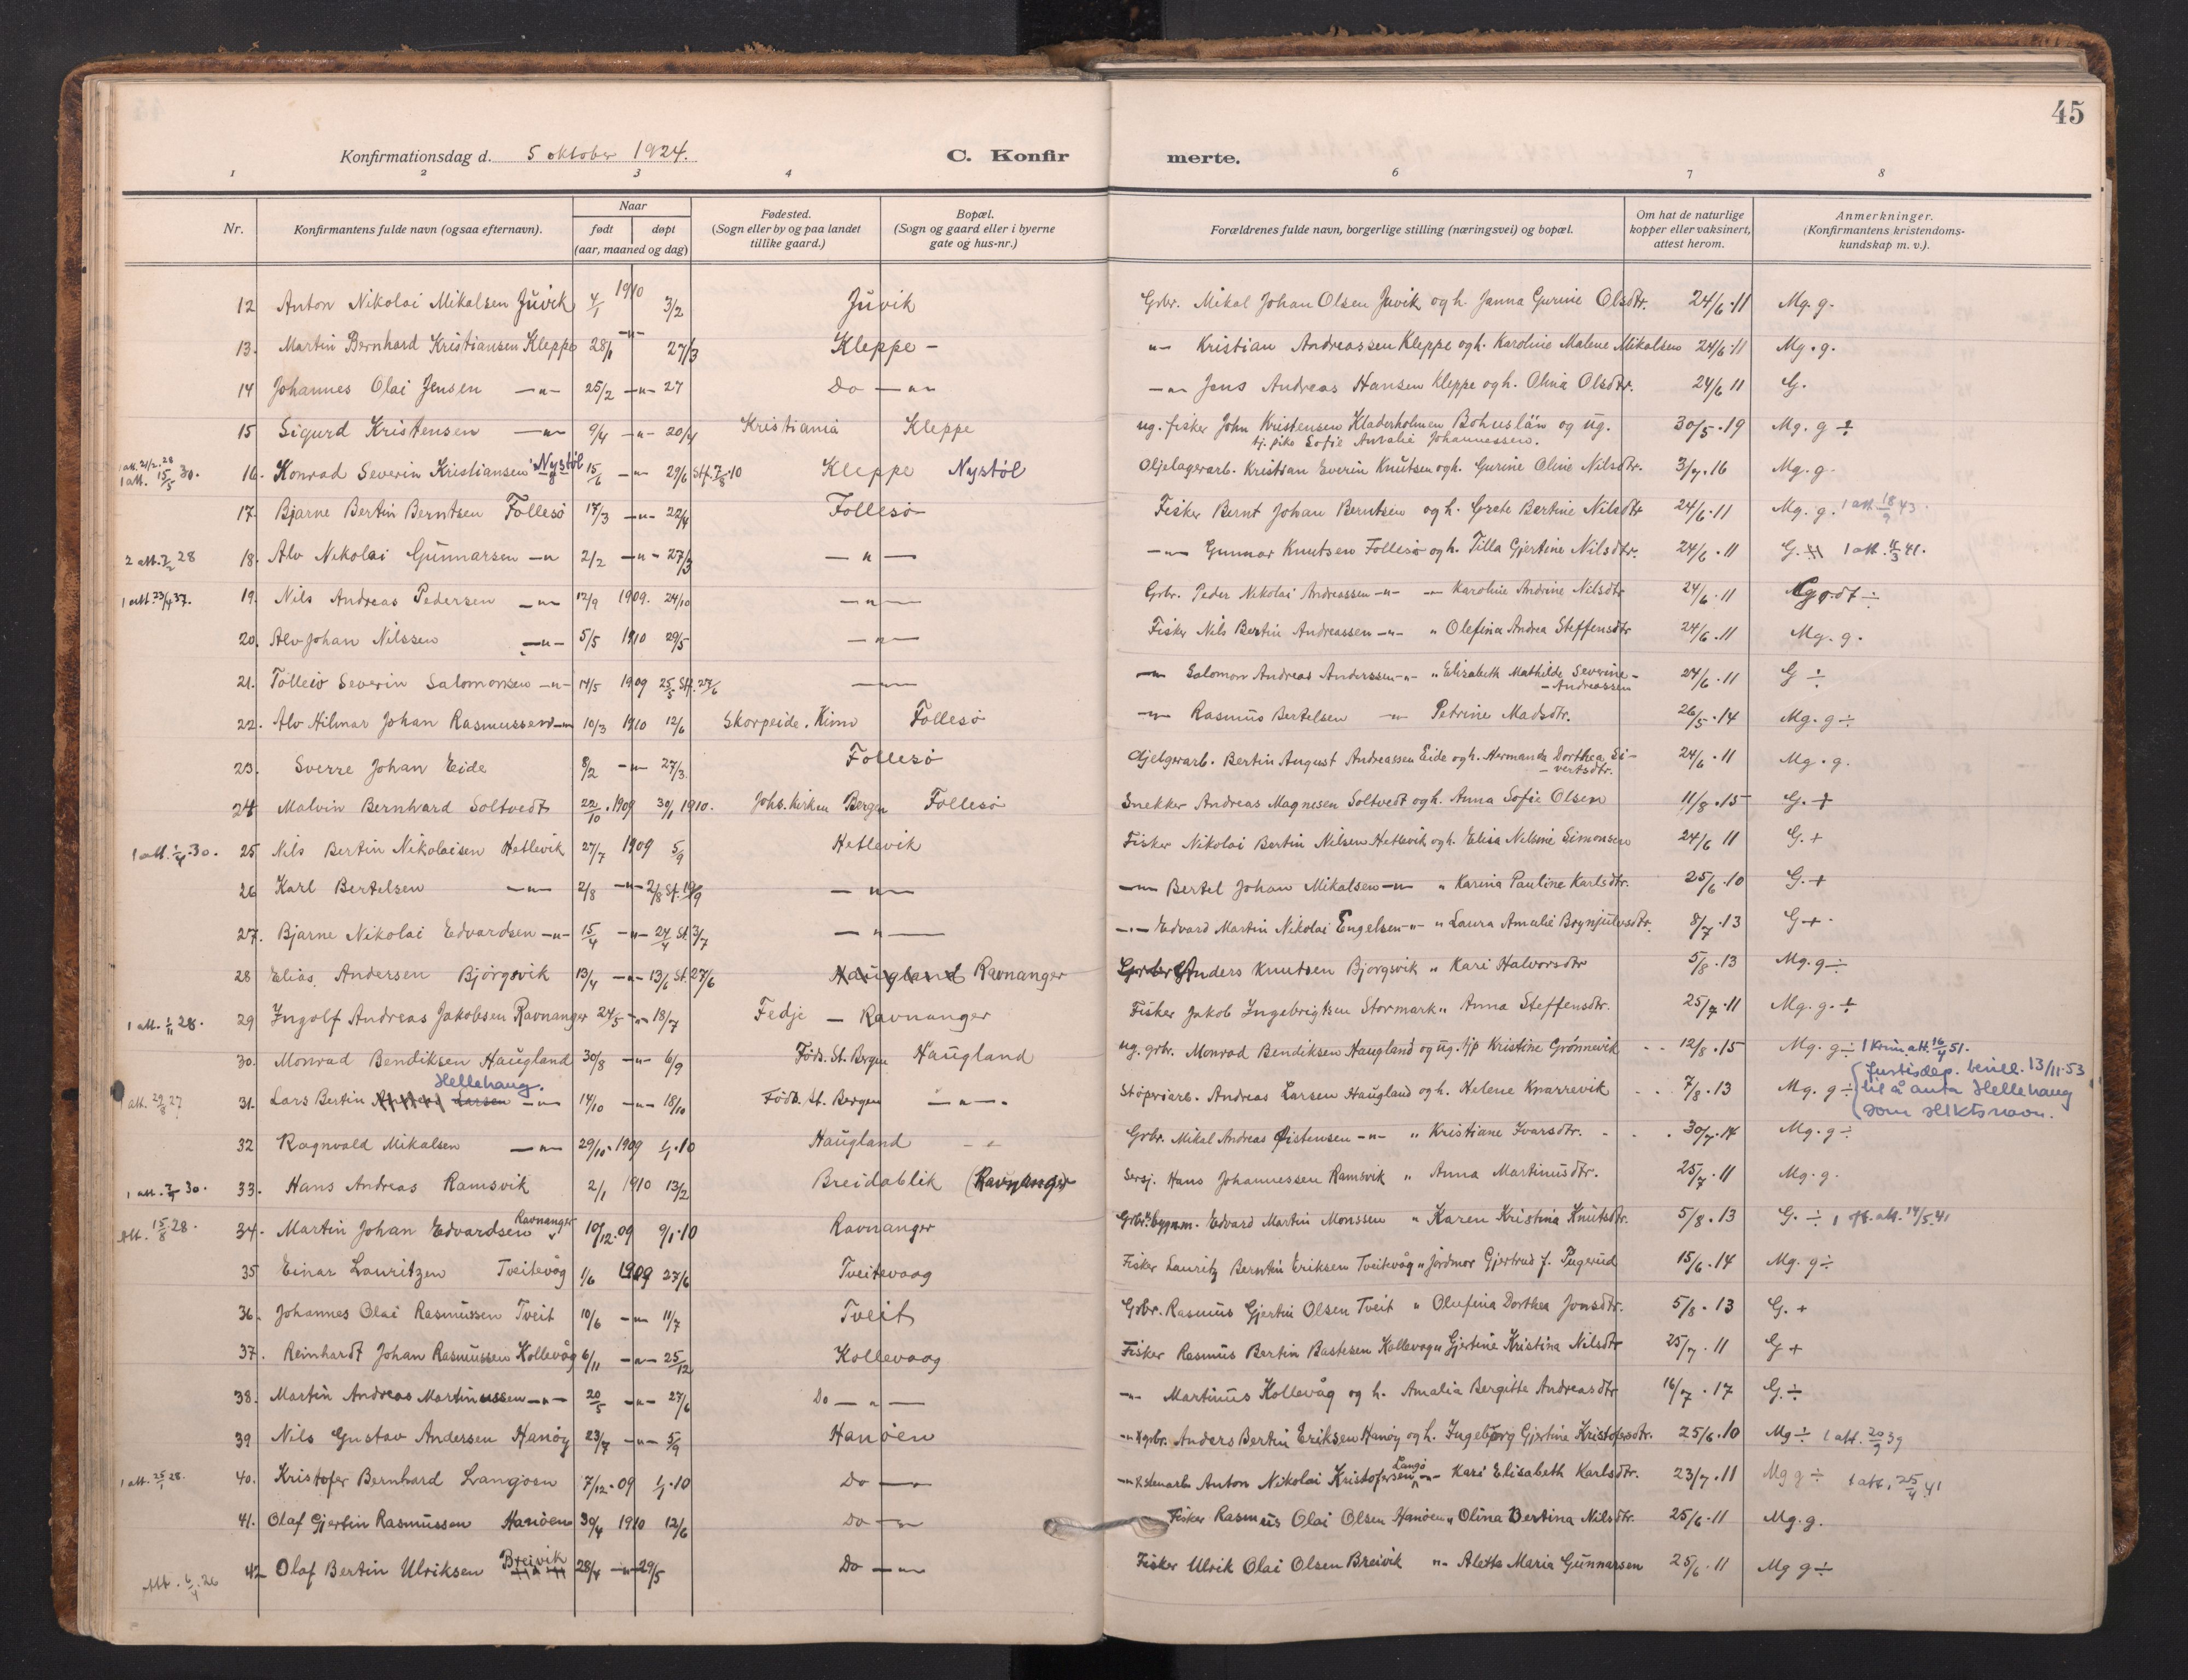 45
Konfirmationsdag d. 5 oktober 1924.
C. Konfirmerte.
1 2 3 4 6 7 8
Nr. | Konfirmantens fulde navn (ogsaa efternavn). | Naar født døpt (aar, maaned og dag) | Fødested. (Sogn eller by og paa landet tillike gaard.) | Bopæl. (Sogn og gaard eller i byerne gate og hus-nr.) | Forældrenes fulde navn, borgerlige stilling (næringsvei) og bopæl. | Om hat de naturlige kopper eller vaksinert, attest herom. | Anmerkninger. (Konfirmantens kristendomskundskap m. v.).
12 Anton Nikolai Mikalsen Juvik 4/1 1910 3/2 Juvik Grbr. Mikal Johan Olsen Juvik og h. Janna Gurine Olsdtr. 24/6.11 Mg. g.
13. Martin Bernhard Kristiansen Kleppe 28/1 -"- 27/3 Kleppe - "- Kristian Andreassen Kleppe og h. Karoline Malene Mikalsen 24/6.11 Mg. g.
14 Johannes Olai Jensen -"- 25/2 -"- 27 Do -"- -"- Jens Andreas Hansen Kleppe og h. Olina Olsdtr. 24/6 11 G.
15 Sigurd Kristensen -"- 9/4 -"- 20/4 Kristiania Kleppe ug. fisker John Kristensen Kladerholmen Bohuslän og ug. 30/5.19 Mg. g ÷
tj. pike Sofie Amalie Johannessen.
1 att. 21/2.28
1 att. 15/5 30. 16. Konrad Severin Kristiansen Nystöl 15/6 -"- 29/6 Stf. 7/8.10 Kleppe Nystöl Oljelagerarb. Kristian Everin Knutsen og h. Gurine Oline Nilsdtr. 3/7.16 Mg. g.
17. Bjarne Bertin Berntsen Follesö 17/3 -"- 22/4 Follesö Fisker Bernt Johan Berntsen og h. Grete Bertine Nilsdtr 24/6.11 Mg. g. 1 att. 18/9 43.
2 att. 7/2 28 18. Alv Nikolai Gunnarsen -"- 2/2 -"- 27/3 -"- -"- Gunnar Knutsen Follesö og h. Tilla Gjertine Nilsdtr. 24/6.11 G. 1 att. 11/3 41.
1 att. 23/4 37. 19. Nils Andreas Pedersen -"- 12/9 1909. 24/10 -"- Grbr. Peder Nikolai Andreassen -"- -"- Karoline Andrine Nilsdtr 24/6.11 Mg. ÷
20. Alv Johan Nilssen -"- 5/5 1910 29/5 -"- Fisker Nils Bertin Andreassen -"- " Olefina Andrea Steffensdtr 24/6.11 Mg. g.
21. Tolleiv Severin Salomonsen -"- 14/5 1909 25/5 Stf. 27/6 -"- -"- Salomon Andreas Anderssen -"- " Elisabeth Mathilde Severine - 24/6.11 G ÷
- Andreassen
22. Alv Hilmar Johan Rasmussen -"- 10/3 1910 12/6 Skorpeide. Kinn Follesö -"- Rasmus Bertelsen -"- Petrine Madsdtr. 26/5.14 Mg. g ÷
23. Sverre Johan Eide 8/2 -"- 27/3. Follesö Oljelgerarb. Bertin August Andreassen Eide og h. Hermanda Dorthea Si- 24/6.11 Mg. g.
- vertsdtr.
24 Malvin Bernhard Soltvedt 22/10.1909 30/1 1910. Johs. kirken Bergen Follesö Snekker Andreas Magnesen Soltvedt og h. Anna Sofie Olsen 11/8.15 G. +
1 att. 1/4.30. 25 Nils Bertin Nikolaisen Hetlevik 27/7 1909 5/9 Hetlevik Fisker Nikolai Bertin Nilsen Hetlevik og h. Elisa Nelsine Simonsen 24/6 11 G. +
26 Karl Bertelsen -"- 2/8 -"- 2/8 St. 19/9 -"- -"- Bertel Johan Mikalsen -"- " Karina Pauline Karlsdtr. 25/6.10 G. +
27. Bjarne Nikolai Edvardsen -"- 15/4 -"- 24/4 St. 3/7 -"- -"- Edvard Martin Nikolai Engelsen -"- " Laura Amalie Brynjulvsdtr. 8/7.13 G + .
28 Elias Andersen Bjørgsvik 13/4 -"- 13/6 St. 27/6 Haugland Ravnanger Anders Knutsen Bjorgsvik " Kari Halvorsdtr 5/8.13 Mg. g ÷
1 att. 1/11 28. 29 Ingolf Andreas Jakobsen Ravnanger 24/5 -"- 18/7 Fedje - Ravnanger Fisker Jakob Ingebrigtsen Stormark " Anna Steffensdtr. 25/7.11 Mg. g. ÷
30. Monrad Bendiksen Haugland 30/8 -"- 6/9 Föds. St. Bergen Haugland ug. grbr. Monrad Bendiksen Haugland og ug. tjp Kristine Grönnevik 12/8.15 Mg. g ÷ 1 att. 16/4 51.
Hellehaug.
1 att. 29/8 27 31. Lars Bertin Larsen -"- 14/10 -"- 18/10 Föds. St. Bergen -"- Støperiarb. Andreas Larsen Haugland og h. Helene Knarrevik 7/8.13 Mg. g ÷ Justisdep. bevill. 13/11-53
til å anta Hellehaug
som slektsnavn.
32 Ragnvald Mikalsen -"- 29/10.1909 1/1.10 Haugland -"- Grbr. Mikal Andreas Øistensen -"- " Kristiane Ivarsdtr. 30/7.14 Mg. g ÷
1 att. 7/4 30. 33. Hans Andreas Ramsvik 2/1 1910 13/2 Breidablik (Ravnanger Sersj. Hans Johannessen Ramsvik " Anna Martinusdtr. 25/7.11 Mg. g.
Att. 15/8 28. 34. Martin Johan Edvardsen Ravnanger 10/12.09 9/1.10 Ravnanger Grbr. bygnm. Edvard Martin Monssen " Karen Kristina Knutsdtr. 5/8.13 G. ÷ 1 att. 14/5.41
35 Einar Lauritzen Tveitevåg 1/6 1909 27/6 Tveitevaag Fisker Lauritz Berntin Eriksen Tveitevåg " jordmor Gjertrud f. Pugerud 15/6.14 Mg. g ÷
36. Johannes Olai Rasmussen Tveit 10/6 -"- 11/7 Tveit Grbr. Rasmus Gjertin Olsen Tveit " Olufina Dorthea Jonsdtr. 5/8.13 G. +
37. Reinhardt Johan Rasmussen Kollevåg 6/11 -"- 25/12 Kollevaag Fisker Rasmus Bertin Bastesen Kollevag " Gjertine Kristina Nilsdtr 25/7.11 G +
38. Martin Andreas Martinussen -"- 20/5 -"- 27/6 Do -"- -"- Martinus Kollevåg og h. Amalia Bergitte Andreasdtr 16/7.17 G. ÷
39 Nils Gustav Andersen Hanöy 23/7 -"- 5/9 Hanöen -"- grbr. Anders Bertin Eriksen Hanöy og h. Ingeborg Gjertine Kristofersdtr. 25/6.10 Mg ÷ 1 att. 20/9 39
1 att. 25/1 28. 40. Kristofer Bernhard Langöen 7/12.09 1/1.10 Do -"- Anton Nikolai Kristofersen Langö -"- Kari Elisabeth Karlsdtr. 23/7.11 Mg g ÷ 1 att. 25/4 41
41. Olaf Gjertin Rasmussen Hanöen 30/4 1910 12/6 Do -"- Fisker Rasmus Olai Olsen Hanöen " Olina Bertina Nilsdtr. 25/6.11 Mg. g.
Att. 6/4.26 42 Olaf Bertin Ulriksen Breivik 28/4 -"- 29/5 Do -"- Fisker Ulrik Olai Olsen Breivik " Aletta Maria Gunnarsen 25/6.11 Mg g ÷